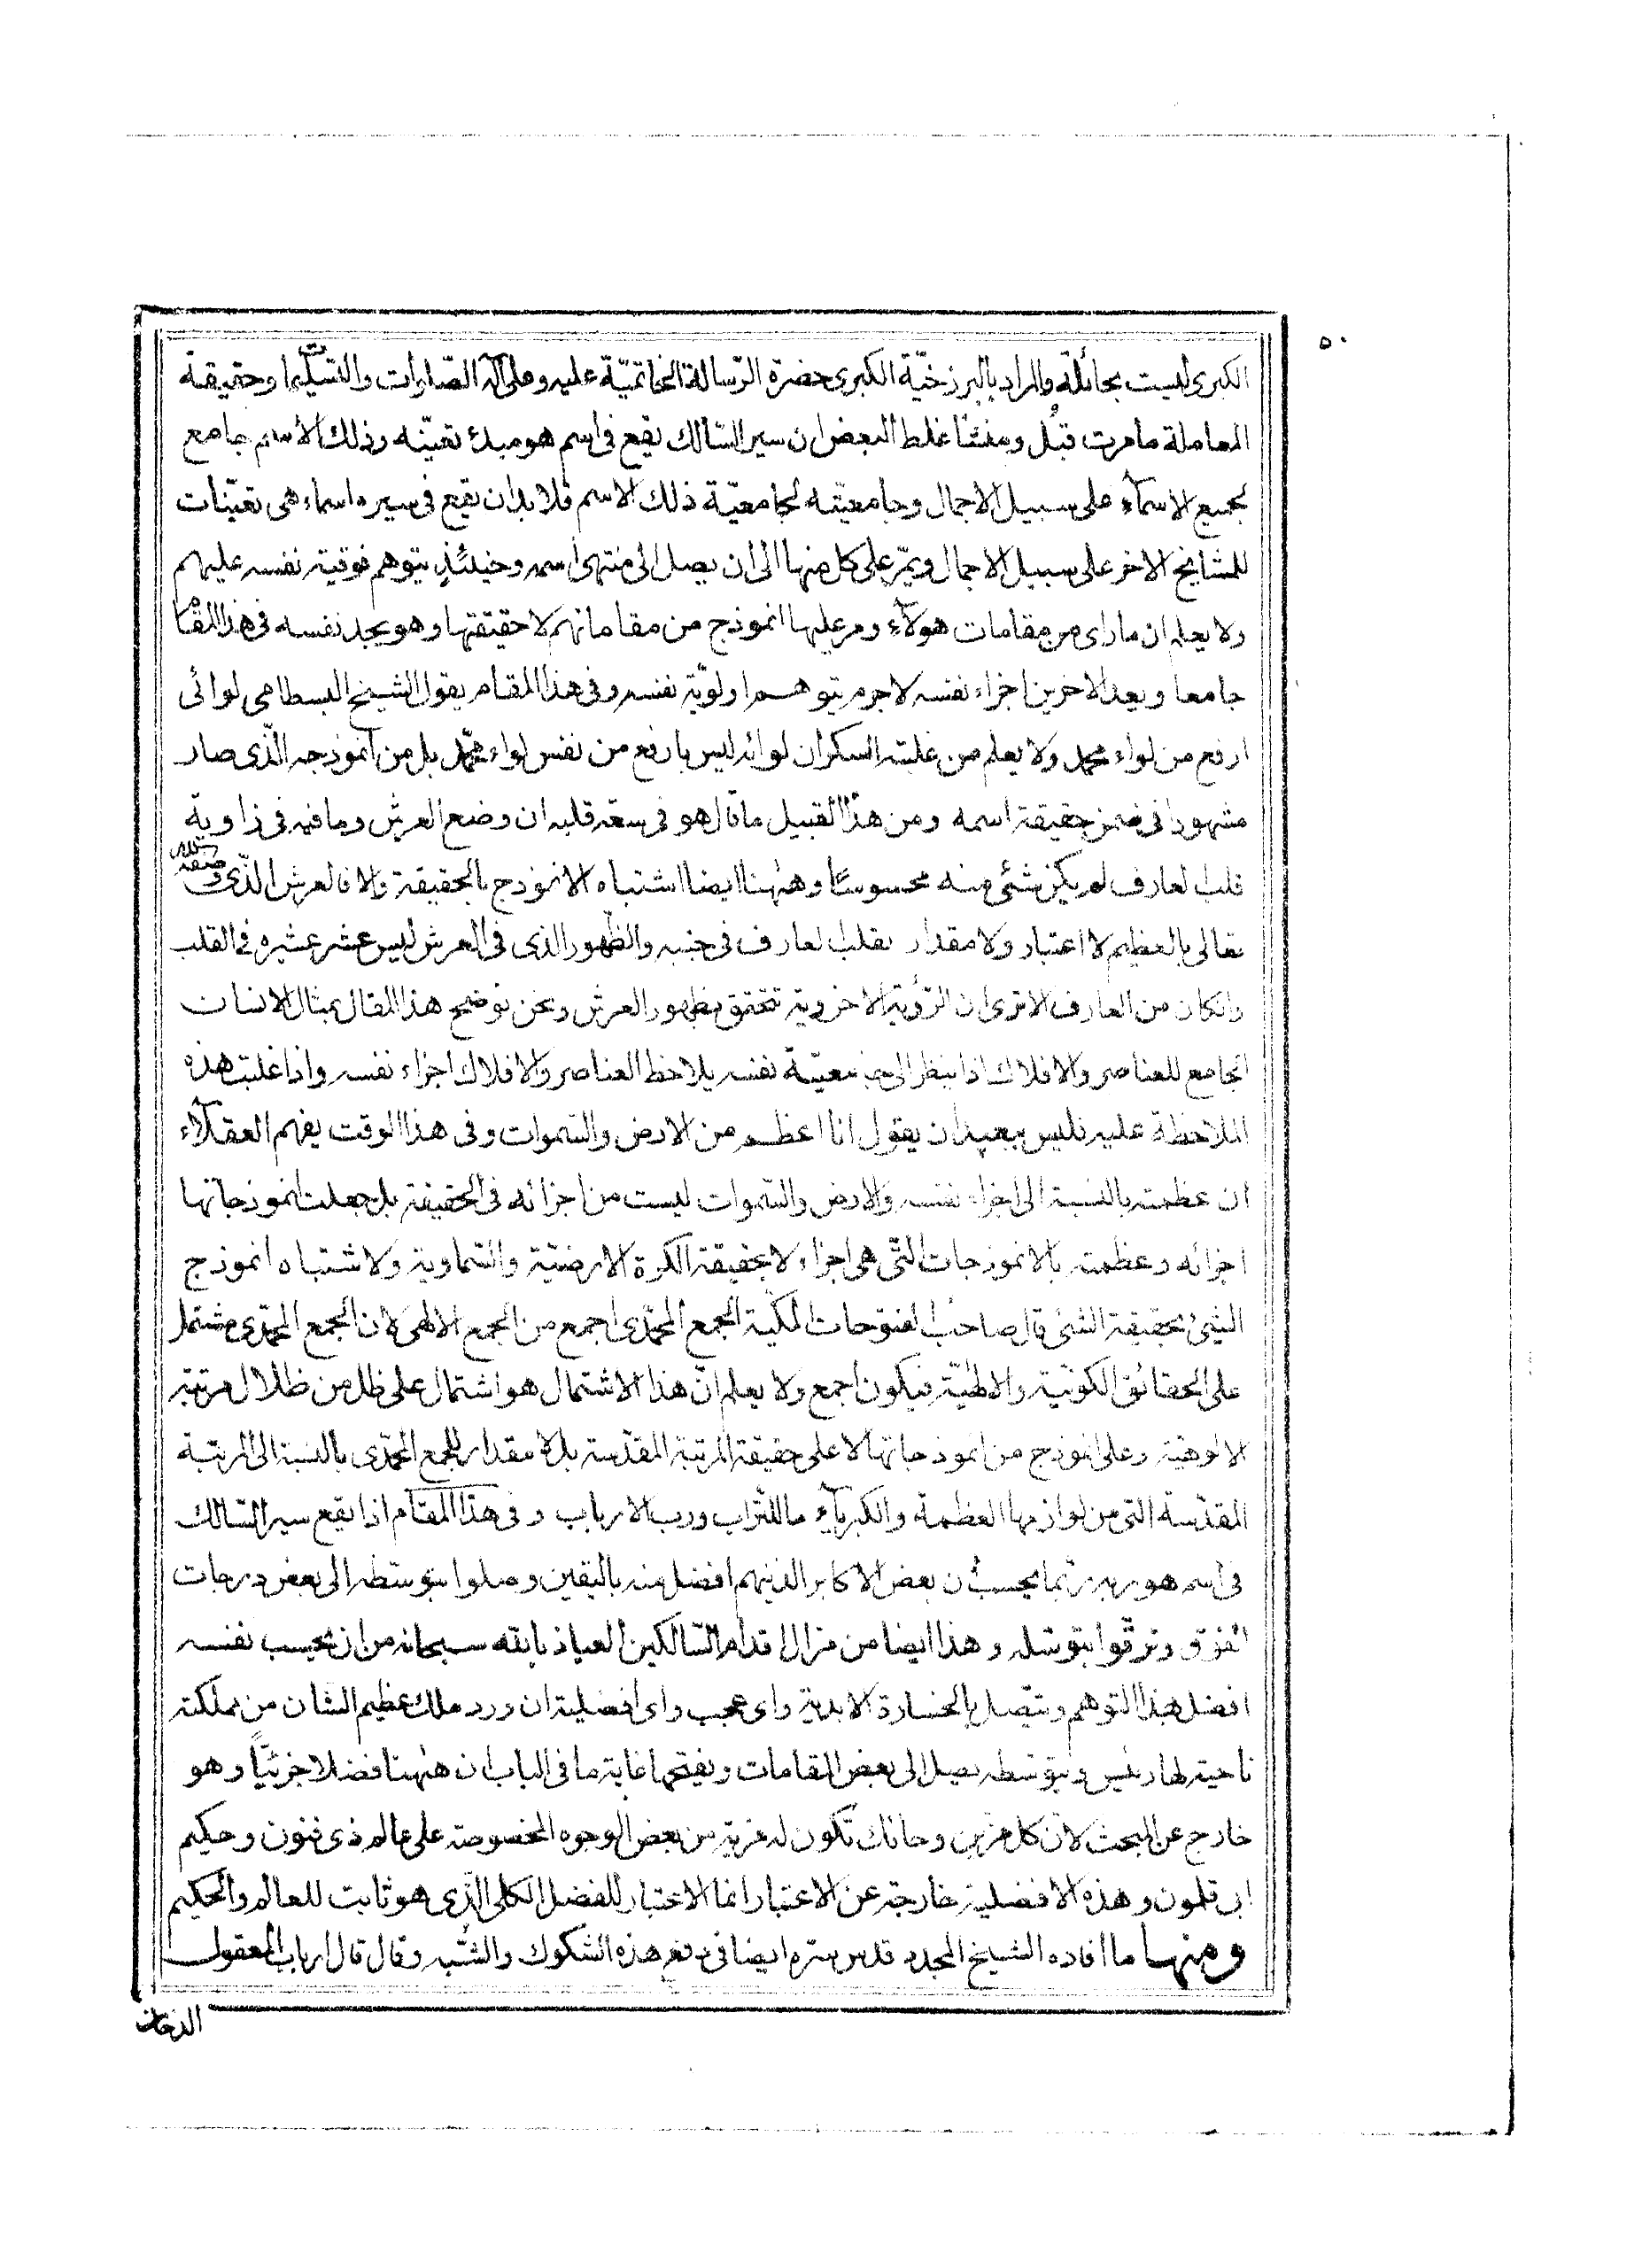 ٥٠
الكبرى ليست بحائلة والمراد بالبرزخيّة الكبرى حضرة الرّسالة الخاتميّة عليه وعلى آله الصّلوات والتسليمات وحقيقة
المعاملة ما مرت قبل ومنشأ غلط البعض ان سير السّالك يقع فى اسم هو مبدء تعيّنه وذلك الاسم جامع
لجميع الاسمآء على سبيل الاجمال وجامعيّته لجامعيّة ذلك الاسم فلا بد ان يقع فى سيره اسماء هى تعيّنات
للمشايخ الاخر على سبيل الاجمال ويمّر على كل منها الى ان يصل الى منتهى اسمه وحينئذٍ يتوهم فوقية نفسه عليهم
ولا يعلم ان ما راى من مقامات هولآء ومر عليها انموذج من مقاماتهم لا حقيقتها وهو يجد نفسه فى هذا المقام
جامعا ويعد الاخرين اجزاء نفسه لاجرم يتوهم اولويّة نفسه وفى هذا المقام يقول الشيخ البسطامى لوائى
ارفع من لواء محمد ولا يعلم من غلبته السكر ان لوائه ليس بارفع من نفس لواء محمّد بل من انموذجه الّذى صار
مشهودا فى ضمن حقيقة اسمه ومن هذا القبيل ما قال هو فى سعة قلبه ان وضع العرش وما فيه فى زاوية
قلب العارف لم يكن شئ منه محسوسًا وههنا ايضا اشتباه الانموذج بالحقيقة والا فالعرش الّذى وصفه الله
تعالى بالعظيم لا اعتبار ولا مقدار لقلب العارف فى جنبه والظّهور الذى فى العرش ليس عشر عشيره فى القلب
وان كان من العارف الا ترى ان الرّؤية الاخروية تتحقق بظهور العرش ونحن نوضح هذا المقال بمثال الانسان
الجامع للعناصر والافلاك اذا ينظر الى جامعيّة نفسه يلاحظ العناصر والافلاك اجزاء نفسه واذا غلبت هذه
الملاحظة عليه فليس ببعيد ان يقول انا اعظم من الارض والسّموات وفى هذا الوقت يفهم العقلآء
ان عظمته بالنسبة الى اجزاء نفسه والارض والسّموات ليست من اجزائه فى الحقيقة بل جعلت انموذجاتها
اجزائه وعظمته بالانموذجات التّى هى اجزاء لا بحقيقة الكرة الارضيّة والسّماوية ولاشتباه انموذج
الشئ بحقيقة الشئ قال صاحب الفتوحات المكّية الجمع المحمّدى اجمع من الجمع الالهى لان الجمع المحمّدى مشتمل
على الحقائق الكونيّة والالهيّة فيكون اجمع ولا يعلم انّ هذا الاشتمال هو اشتمال على ظل من ظلال مرتبة
الالوهيّة وعلى انموذج من انموذجاتها لا على حقيقة المرتبة المقدّسة بل لا مقدار للجمع المحمّدى بالنسبة الى المرتبة
المقدّسة التى من لوازمها العظمة والكبريآء ما للتّراب ورب الارباب وفى هذا المقام اذا يقع سير السّالك
فى اسم هو ربه ربّما يحسب ان بعض الاكابر الذينهم افضل منه باليقين وصلوا بتوسّطه الى بعض درجات
الفوق وترقّوا بتوسّله وهذا ايضا من مزال اقدام السّالكين العياذ بالله سبحانه من ان يحسب نفسه
افضل بهذا التوهم ويتّصل بالخسارة الابدية واى عجب واى افضلية ان ورد ملك عظيم الشان من مملكته
ناحية لها رئيس وبتوسّطه يصل الى بعض المقامات ويفتحها غاية ما فى الباب ان ههنا فضلا جزئيّاً وهو
خارج عن البحث لانّ كل مزين وحائك تكون له مزية من بعض الوجوه المخصوصة على عالم ذى فنون وحكيم
ابى قلمون وهذه الافضلية خارجة عن الاعتبار انما الاعتبار للفضل الكلى الّذى هو ثابت للعالم والحكيم
ومنها ما افاده الشيخ المجدد قدس سّره ايضا فى رفع هذه الشكوك والشّبه وقال قال ارباب المعقول